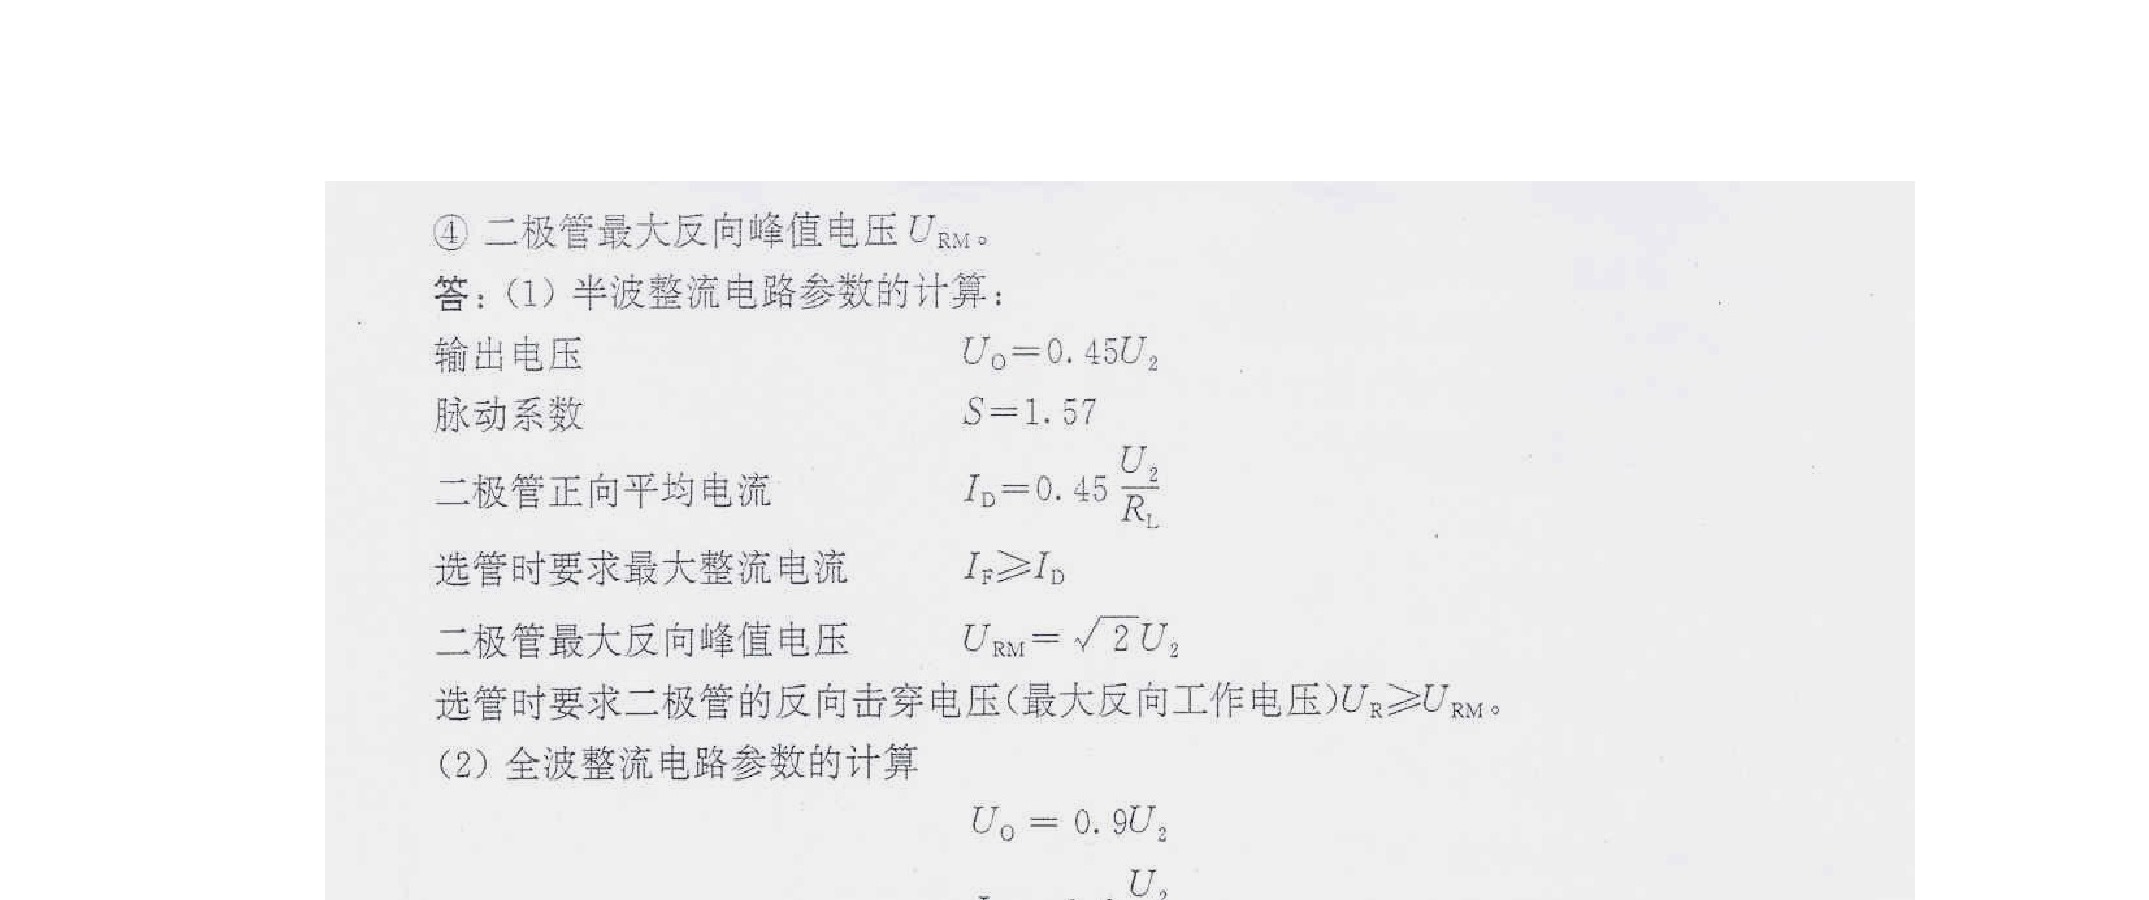 ④ 二极管最大反向峰值电压 U_RM。
答：（1）半波整流电路参数的计算：
输出电压 U_O=0.45U_2
脉动系数 S=1.57
二极管正向平均电流 I_D=0.45 U_2/R_L
选管时要求最大整流电流 I_F≥I_D
二极管最大反向峰值电压 U_RM=√2U_2
选管时要求二极管的反向击穿电压（最大反向工作电压）U_R≥U_RM。
（2）全波整流电路参数的计算
U_O = 0.9U_2
U_2